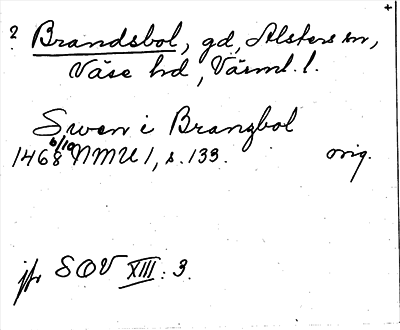 +
? Brandsbol, gd, Alsters sn,
Väse hd, Värml. l.
Swen i Brangbol
1468 6/10 NMU 1, s. 133. orig.
jfr SOV XIII: 3.